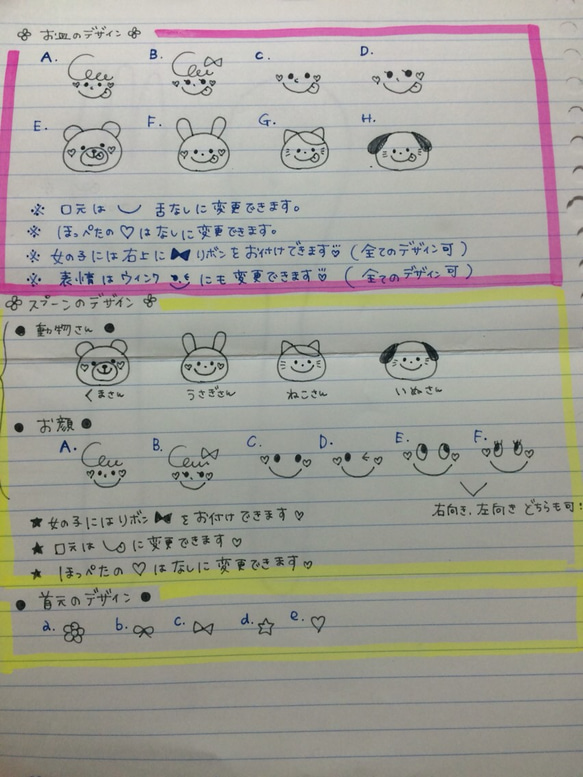 お皿のデザイン
A. B. C. D.
E. F. G. H.
※ 口元は 舌なしに変更できます。
※ ほっぺたの♡はなしに変更できます。
※ 女の子には右上に リボンをお付けできます♡ (全てのデザイン可)
※ 表情はウインク にも変更できます♡ (全てのデザイン可)
スプーンのデザイン
● 動物さん ●
くまさん うさぎさん ねこさん いぬさん
● お顔 ●
A. B. C. D. E. F.
右向き、左向き どちらも可!
★ 女の子にはリボン をお付けできます♡
★ 口元は に変更できます♡
★ ほっぺたの♡はなしに変更できます♡
● 首元のデザイン ●
a. b. c. d. e.